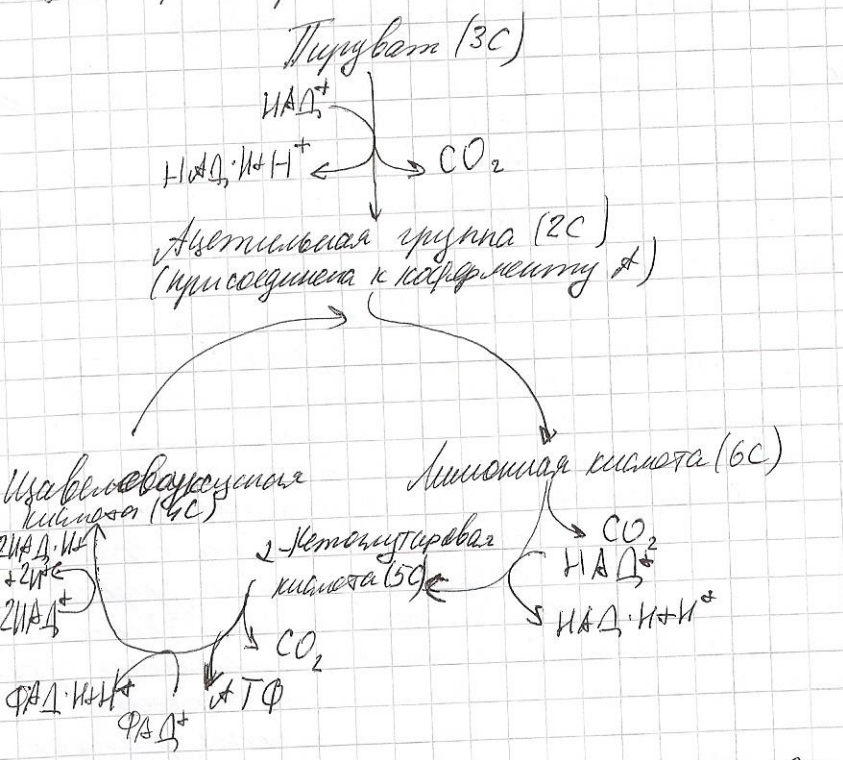 Пируват (3С)
НАД⁺
НАД·Н+Н⁺
СО₂
Ацетильная группа (2С)
(присоединена к коферменту А)
Щавелевоуксусная
кислота (4С)
Лимонная кислота (6С)
2НАД·Н+
+2Н⁺
2НАД⁺
2-Кетоглутаровая
кислота (5С)
СО₂
НАД⁺
НАД·Н+Н⁺
СО₂
АТФ
ФАД·Н+Н⁺
ФАД⁺